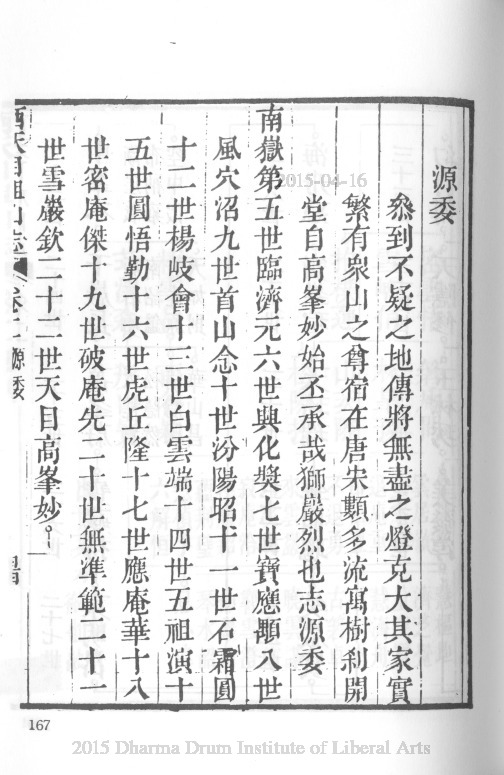 源委
叅到不疑之地傳將無盡之燈克大其家實
繁有衆山之尊宿在唐宋數多流寓樹刹開
堂自高峯妙始丕承哉獅巖烈也志源委
南嶽第五世臨濟元六世興化奬七世寶應顒八世
風穴沼九世首山念十世汾陽昭十一世石霜圓
十二世楊岐會十三世白雲端十四世五祖演十
五世圓悟勤十六世虎丘隆十七世應庵華十八
世密庵傑十九世破庵先二十世無準範二十一
世雪巖欽二十二世天目高峯妙。
西天目祖山志 卷二 源委
167
2015-04-16
2015 Dharma Drum Institute of Liberal Arts